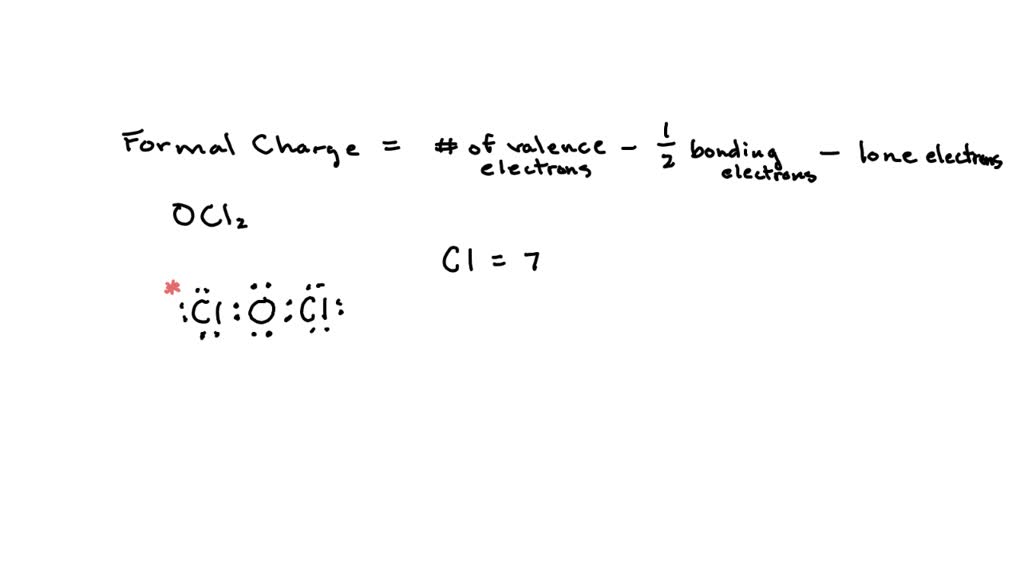 Formal Charge = # of valence electrons - 1/2 bonding electrons - lone electrons
OCl₂
Cl = 7
* :Cl:O:Cl: